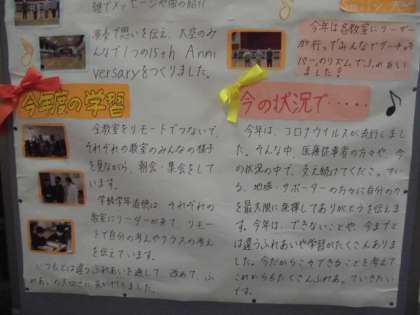 誰でメッセージや
歌で思いを伝え、大空のみ
んなで1つの15th Anni
versaryをつくりました。
今年は各教室にリーダー
が行って、みんなで
のリズムでふれあい
ました!
今年度の学習
全教室をリモートでつないで、
それぞれの教室のみんなの様子
を見ながら、朝会・集会をして
います。
それぞれの
教室にリーダーが来て、リモー
トで自分の考えやクラスの考え
を伝えています。
いつもとは違うふれあいを通して、改めて、ふ
れあいの大切さに気が付きました。
今の状況で……
今年は、コロナウイルスが流行しまし
た。そんな中、医療従事者の方々や、今
の状況の中で、支え続けてくださってい
る、地域・サポーターの方々に自分の力
を最大限に発揮してありがとうを伝えま
す。今年は、できないことや、今までと
は違うふれあいや学習がたくさんありま
した。今だからこそできることを考えて
これからもたくさんふれあっていきたい
です。